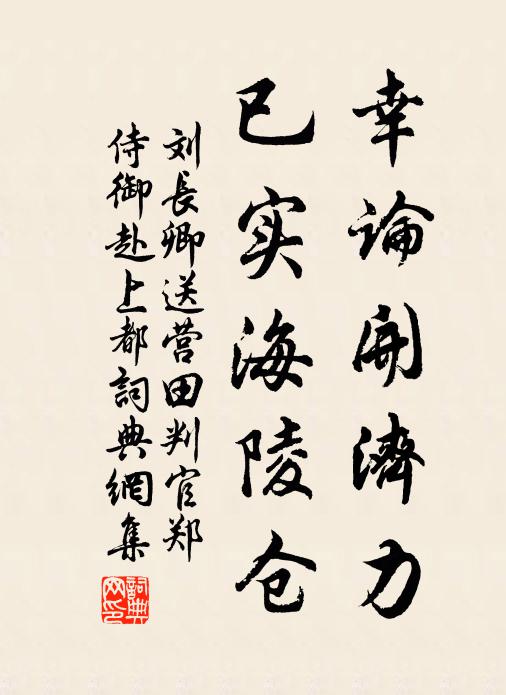 幸論開濟力
已实海陵仓
刘長卿送营田判官郑
侍御赴上都詞典網集
詞典网印